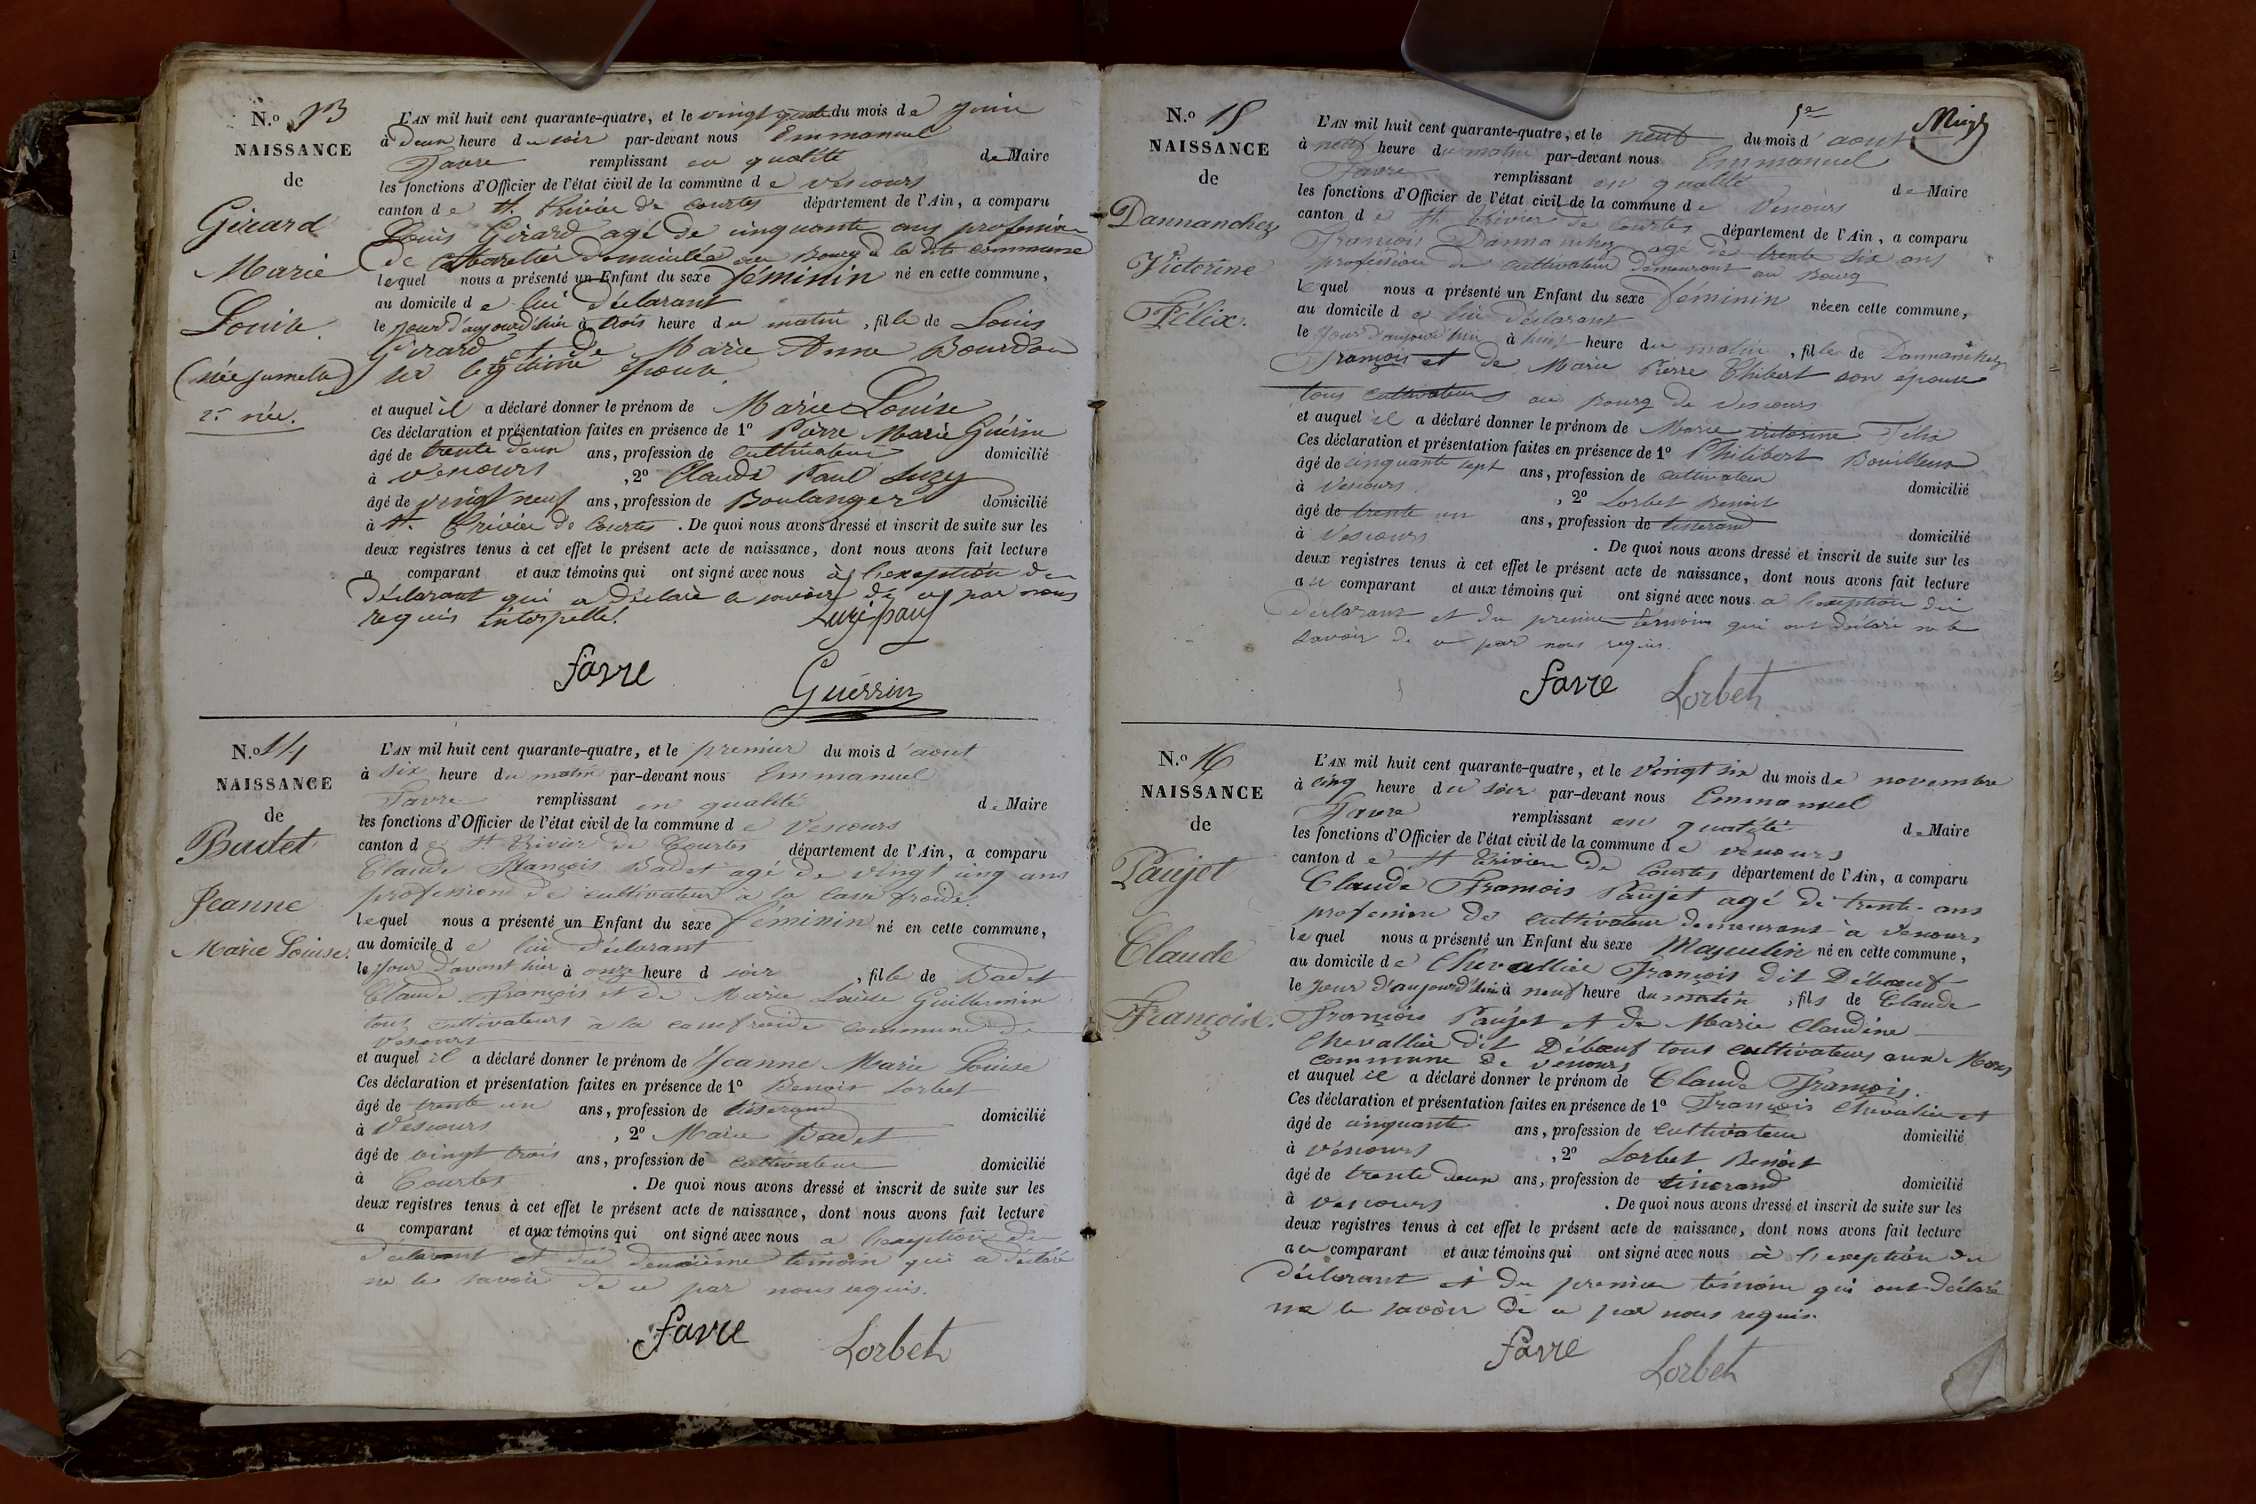 N.º 13
NAISSANCE
de
Girard
Marie
Louise.
(née jumelle)
2e née.
L'AN mil huit cent quarante-quatre, et le vingt quatre du mois de juin
à deux heure du soir par-devant nous Emmanuel
Favre remplissant en qualité de Maire
les fonctions d'Officier de l'état civil de la commune de Vescours
canton de St. Trivier de Courtes département de l'Ain, a comparu
Louis Girard agé de cinquante ans profession
de domicilié au Bourg de la dite commune
lequel nous a présenté un Enfant du sexe féminin né en cette commune,
au domicile de lui déclarant
le jour d'aujourd'hui à trois heure du matin, fille de Louis
Girard et de Marie Anne Bourdon
sa légitime épouse
et auquel il a déclaré donner le prénom de Marie Louise
Ces déclaration et présentation faites en présence de 1º Pierre Marie Guérin
âgé de trente deux ans, profession de cultivateur domicilié
à Vescours, 2º Claude Paul Luzy
âgé de vingt neuf ans, profession de Boulanger domicilié
à St. Trivier de Courtes. De quoi nous avons dressé et inscrit de suite sur les
deux registres tenus à cet effet le présent acte de naissance, dont nous avons fait lecture
a comparant et aux témoins qui ont signé avec nous à l'exception du
déclarant qui a déclaré le savoir de ce par nous
requis interpellé!
Favre
Guérrin
N.º 14
NAISSANCE
de
Badet
Jeanne
Marie Louise.
L'AN mil huit cent quarante-quatre, et le premier du mois d'aout
à six heure du matin par-devant nous Emmanuel
Favre remplissant en qualité de Maire
les fonctions d'Officier de l'état civil de la commune de Vescours
canton de St Trivier de Courtes département de l'Ain, a comparu
Claude François Badet agé de vingt cinq ans
profession de cultivateur à la casse froide.
lequel nous a présenté un Enfant du sexe féminin né en cette commune,
au domicile de lui déclarant
le jour d'avant hier à onze heure d soir, fille de Badet
Claude François et de Marie Louise Guillermin
tous cultivateurs à la casse froide commune de
Vescours
et auquel il a déclaré donner le prénom de Jeanne Marie Louise
Ces déclaration et présentation faites en présence de 1º Benoit Lorbet
âgé de trente un ans, profession de tisserand domicilié
à Vescours, 2º Marie Badet
âgé de vingt trois ans, profession de cultivateur domicilié
à Courtes. De quoi nous avons dressé et inscrit de suite sur les
deux registres tenus à cet effet le présent acte de naissance, dont nous avons fait lecture
a comparant et aux témoins qui ont signé avec nous a l'exception du
déclarant et du deuxième témoin qui a déclaré
ne le savoir de ce par nous requis.
Favre
Lorbet
N.º 15
NAISSANCE
de
Dannanchez
Victorine
Félix.
L'AN mil huit cent quarante-quatre, et le neuf du mois d'aout
à neuf heure du matin par-devant nous Emmanuel
Favre remplissant en qualité de Maire
les fonctions d'Officier de l'état civil de la commune de Vescours
canton de St Trivier de Courtes département de l'Ain, a comparu
François Dannanchez agé de trente six ans
profession de cultivateur demeurant au Bourg
lequel nous a présenté un Enfant du sexe féminin née en cette commune,
au domicile de lui déclarant
le jour d'aujourd'hui à heure du matin, fille de Dannanchez
François et de Marie Pierre Thibert son épouse
tous cultivateurs au Bourg de Vescours
et auquel il a déclaré donner le prénom de Marie victorine Félix
Ces déclaration et présentation faites en présence de 1º Philibert Bouilloux
âgé de cinquante sept ans, profession de cultivateur domicilié
à Vescours, 2º Lorbet Benoit
âgé de trente un ans, profession de tisserand domicilié
à Vescours. De quoi nous avons dressé et inscrit de suite sur les
deux registres tenus à cet effet le présent acte de naissance, dont nous avons fait lecture
au comparant et aux témoins qui ont signé avec nous a l'exception du
déclarant et du premier témoin qui ont déclaré ne le
savoir de ce par nous requis.
Favre
Lorbet
N.º 16
NAISSANCE
de
Paujet
Claude
François.
L'AN mil huit cent quarante-quatre, et le vingt six du mois de novembre
à cinq heure du soir par-devant nous Emmanuel
Favre remplissant en qualité de Maire
les fonctions d'Officier de l'état civil de la commune de Vescours
canton de St Trivier de Courtes département de l'Ain, a comparu
Claude François Paujet agé de trente ans
profession de cultivateur demeurant à Vescours
lequel nous a présenté un Enfant du sexe Masculin né en cette commune,
au domicile de Chevallier François dit Débœuf
le jour d'aujourd'hui à neuf heure du matin, fils de Claude
François Paujet et de Marie Claudine
Chevallier dit Débœuf tous cultivateurs aux
commune de Vescours
et auquel il a déclaré donner le prénom de Claude François.
Ces déclaration et présentation faites en présence de 1º François Chevalier
âgé de cinquante ans, profession de cultivateur domicilié
à Vescours, 2º Lorbet Benoit
âgé de trente deux ans, profession de tisserand domicilié
à Vescours. De quoi nous avons dressé et inscrit de suite sur les
deux registres tenus à cet effet le présent acte de naissance, dont nous avons fait lecture
au comparant et aux témoins qui ont signé avec nous à l'exception du
déclarant et du premier témoin qui ont déclaré
ne le savoir de ce par nous requis.
Favre
Lorbet